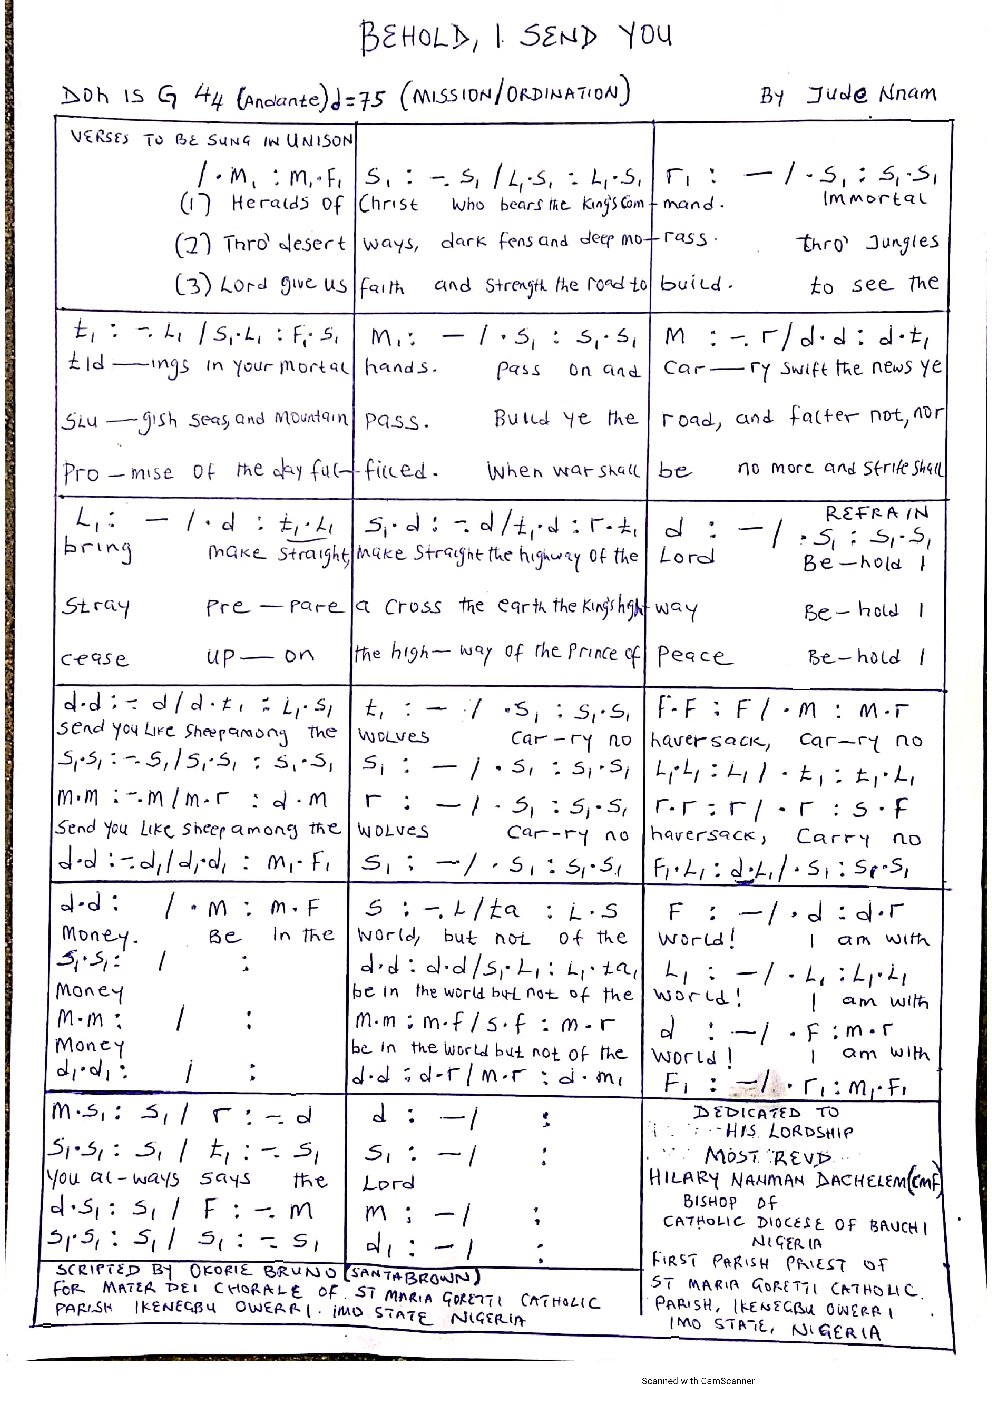 BEHOLD, I SEND YOU
Doh IS G 44 (Andante) d=75 (MISSION/ORDINATION) By Jude Nnam
VERSES TO BE SUNG IN UNISON
/ · M₁ : M₁·F₁ S₁ : -. S₁ / L₁·S₁ : L₁·S₁ r₁ : — / · S₁ : S₁·S₁
(1) Heralds of Christ who bears the King's Com - mand. Immortal
(2) Thro' desert ways, dark fens and deep mo - rass. thro' Jungles
(3) Lord give us faith and strength the road to build. to see the
t₁ : -. L₁ / S₁·L₁ : F₁·S₁ M₁ : — / · S₁ : S₁·S₁ M : -. r / d·d : d·t₁
tid — ings in your mortal hands. Pass on and Car — ry swift the news ye
Slu — gish seas, and mountain pass. Build ye the road, and falter not, nor
Pro - mise of the day ful - filled. When war shall be no more and strife shall
L₁ : — / · d : t₁·L₁ S₁·d : -. d / t₁·d : r·t₁ d : — / REFRAIN · S₁ : S₁·S₁
bring make straight, make straight the highway of the Lord Be - hold I
Stray Pre - pare a cross the earth the King's high way Be - hold I
cease up - on the high - way of the Prince of Peace Be - hold I
d·d : -. d / d·t₁ : L₁·S₁ t₁ : — / · S₁ : S₁·S₁ F·F : F / · M : M·r
send you like sheep among the wolves Car - ry no haversack, Car - ry no
S₁·S₁ : -. S₁ / S₁·S₁ : S₁·S₁ S₁ : — / · S₁ : S₁·S₁ L₁·L₁ : L₁ / · t₁ : t₁·L₁
m·m : -. m / m·r : d·m r : — / · S₁ : S₁·S₁ r·r : r / · r : s·f
send you like sheep among the wolves Car - ry no haversack, Carry no
d·d : -. d₁ / d₁·d₁ : M₁·F₁ S₁ : — / · S₁ : S₁·S₁ F₁·L₁ : d·L₁ / · S₁ : S₁·S₁
d·d : / · M : M·F S : -. L / ta : L·S F : — / · d : d·r
Money. Be in the world, but not of the world! I am with
S₁·S₁ : / : d·d : d·d / S₁·L₁ : L₁·ta₁ L₁ : — / · L₁ : L₁·L₁
Money be in the world but not of the world! I am with
M·m : / : m·m : m·f / s·f : m·r d : — / · F : m·r
Money be in the world but not of the world! I am with
d₁·d₁ : / : d·d : d·r / m·r : d·m₁ F₁ : — / · r₁ : M₁·F₁
M·S₁ : S₁ / r : -. d d : — / :
S₁·S₁ : S₁ / t₁ : -. S₁ S₁ : — / :
You al - ways says the Lord
d·S₁ : S₁ / F : -. m m : — / :
S₁·S₁ : S₁ / S₁ : -. S₁ d₁ : — / :
DEDICATED TO
HIS LORDSHIP
MOST REVD
HILARY NANMAN DACHELEM (CMF)
BISHOP OF
CATHOLIC DIOCESE OF BAUCHI
NIGERIA
FIRST PARISH PRIEST OF
ST MARIA GORETTI CATHOLIC
PARISH, IKENEGBU OWERRI
IMO STATE, NIGERIA
SCRIPTED BY OKORIE BRUNO (SANTABROWN)
FOR MATER DEI CHORALE OF ST MARIA GORETTI CATHOLIC
PARISH IKENEGBU OWERRI. IMO STATE NIGERIA
Scanned with CamScanner